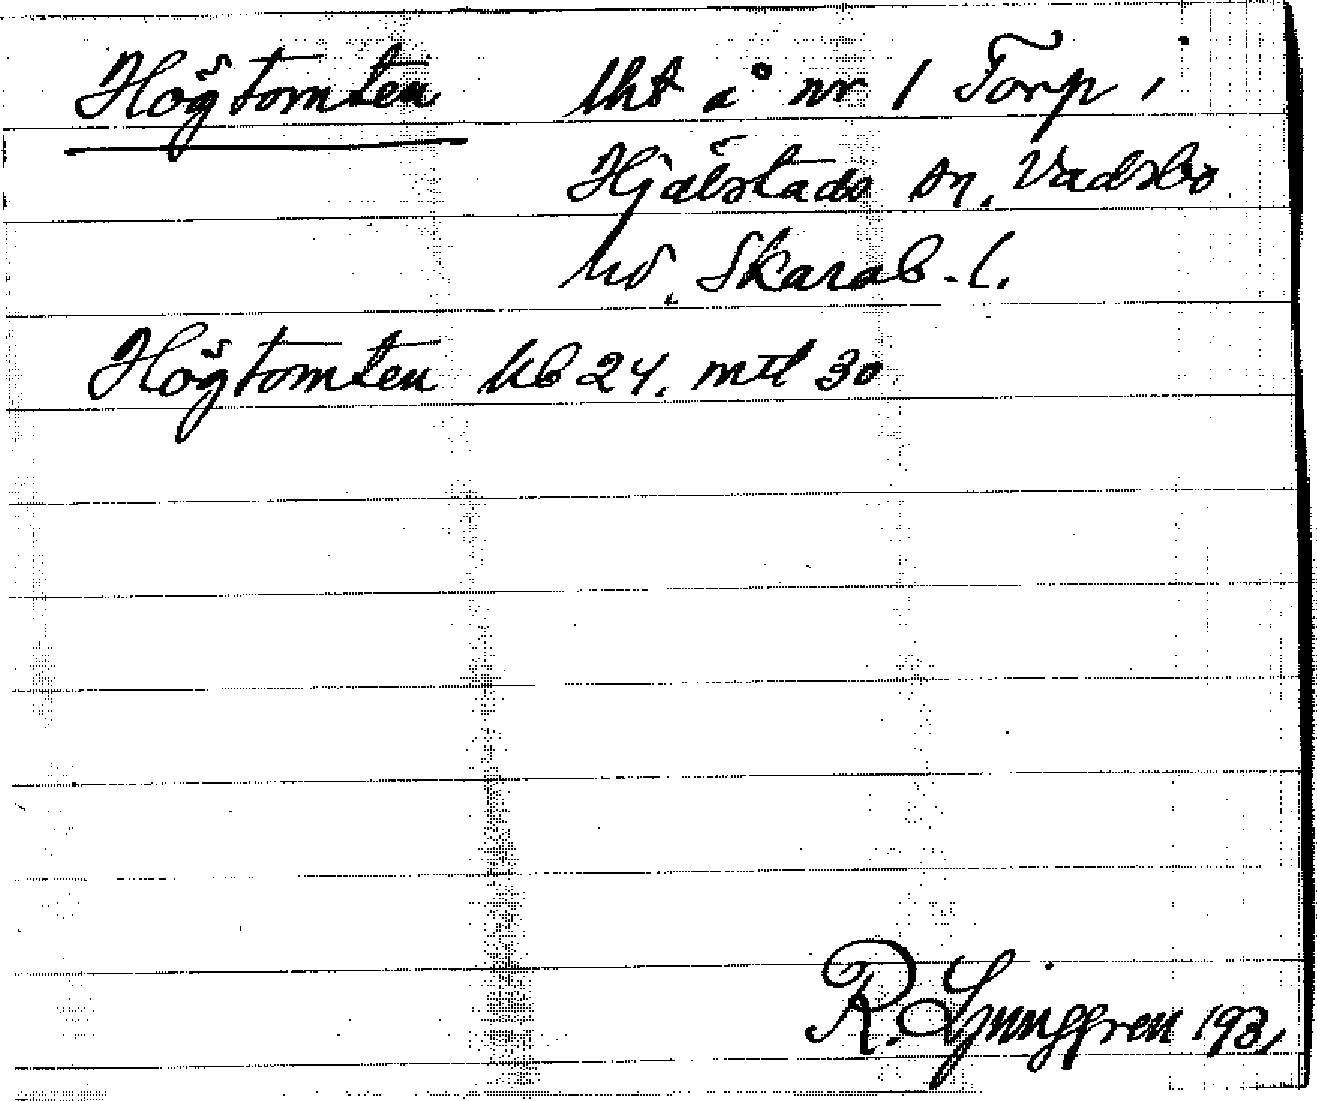 Högtomten lht å nr 1 Torp i
Hjälstads sn, Vadsbo
hd, Skarab. l.
Högtomten kb 24. mtl 30
R. Ljunggren 193